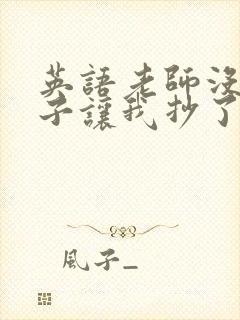 英語老師沒
子讓我抄了
風子_